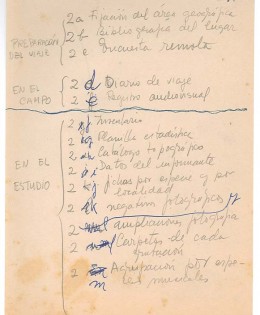 PREPARACIÓN DEL VIAJE
2 a Fijación del área geográfica
2 b Bibliografía del lugar
2 c Encuesta remota
EN EL CAMPO
2 d Diario de viaje
2 e Registro audiovisual
EN EL ESTUDIO
2 f Inventario
2 g Planilla estadística
2 h Catálogo topográfico
2 i Datos del informante
2 j Fichas por especie y por
localidad
2 k negativos fotográficos y
2 ampliaciones fotográficas
2 Carpetas de cada
grabación
2 m Agrupación por espe-
cies musicales